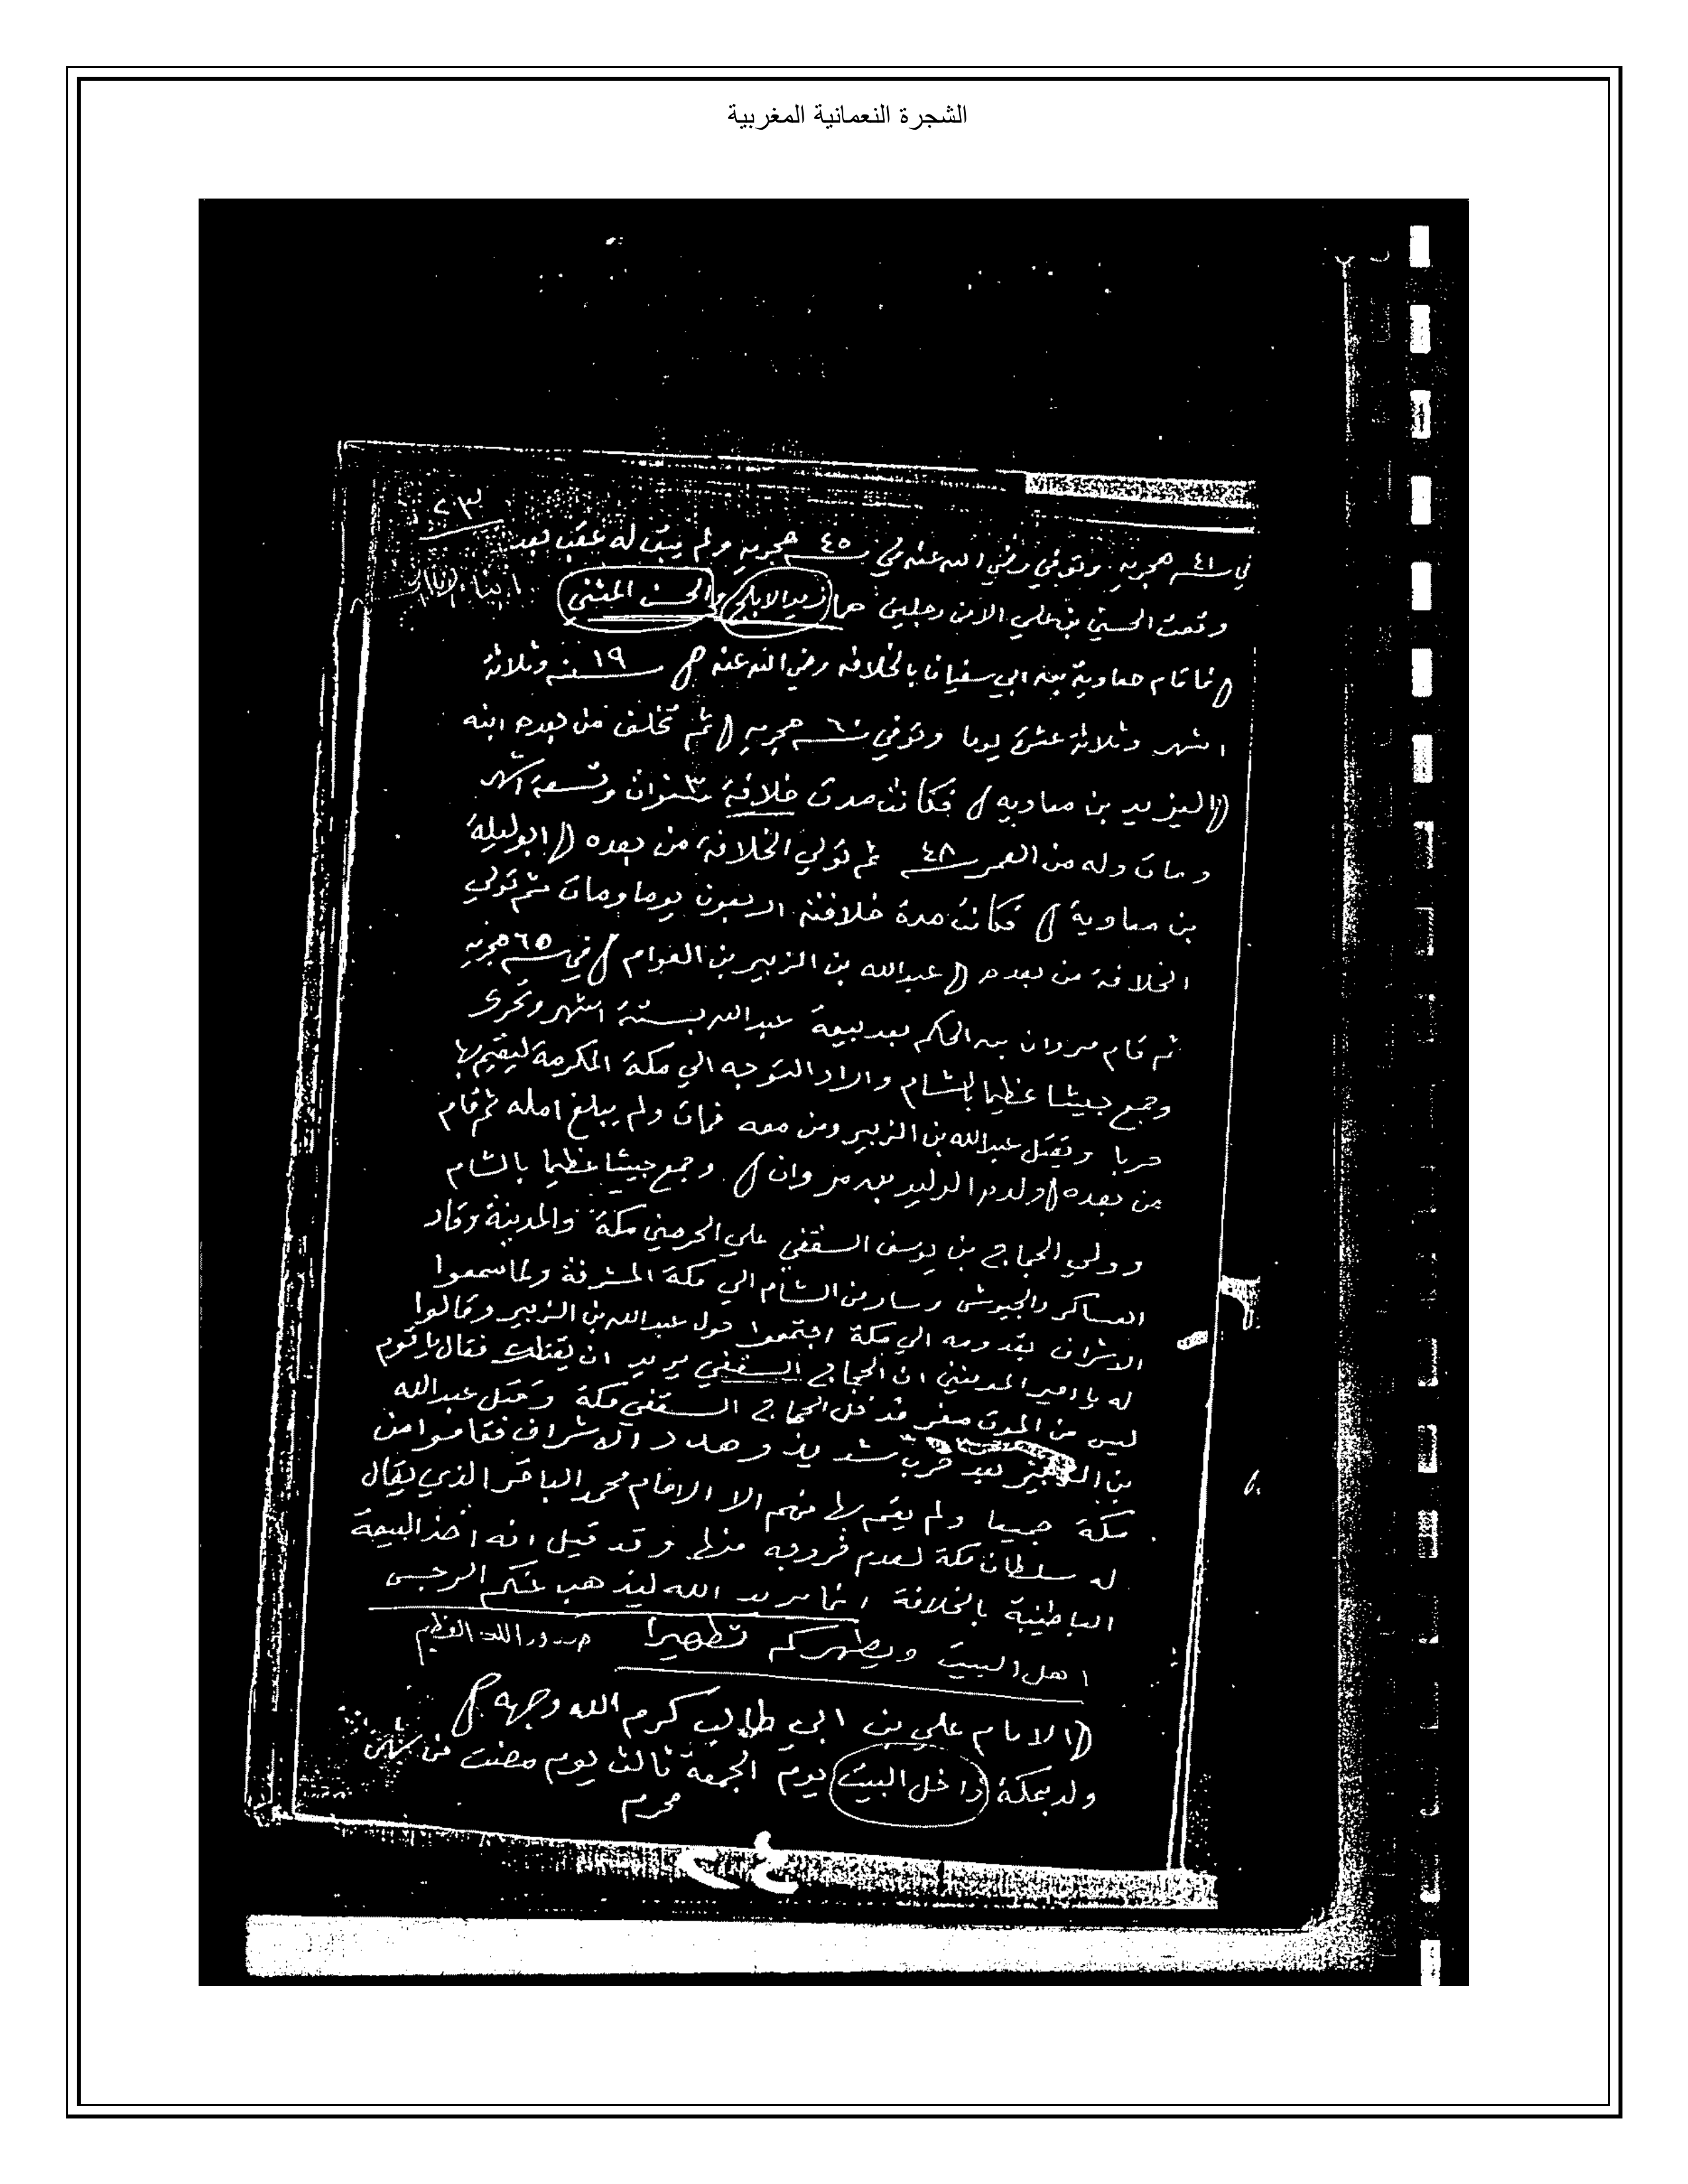 الشجرة النعمانية المغربية
٢٣
في سنة ٤١ هجريه وتوفي رضي الله عنه في سنة ٤٥ هجريه ولم يبق له عقب بعد
وقعت الحسني بن علي الا من رجلين هما زيد الابلج والحسن المثنى
فاقام معاوية بن ابي سفيان بالخلافه رضي الله عنه ١٩ سنه وثلاثة
اشهر وثلاثة عشرة يوما وتوفي سنة ٦٠ هجريه ثم تخلف من بعده ابنه
اليزيد بن معاويه فكانت مدت خلافة ٣ سنوات وتسعة اشهر
ومات وله من العمر ٤٨ سنة ثم تولي الخلافة من بعده ابوليلة
بن معاوية فكانت مدة خلافته اربعون يوما ومات ثم تولي
الخلافة من بعده عبدالله بن الزبير بن العوام في سنة ٦٥ هجريه
ثم قام مروان بن الحكم بعد بيعة عبدالله بستة اشهر وتحرى
وجمع جيشا عظيما بالشام واراد التوجه الي مكة المكرمة ليقيم بها
حربا ويقتل عبدالله بن الزبير ومن معه فمات ولم يبلغ امله ثم قام
من بعده ولده الوليد بن مروان وجمع جيشا عظيما بالشام
وولي الحجاج بن يوسف السقفي علي الحرمين مكة والمدينة وقاد
العساكر والجيوش وسار من الشام الي مكة المشرفة ولما سمعوا
الاشراف بقدومه الي مكة اجتمعوا حول عبدالله بن الزبير وقالوا
له يا امير المومنين ان الحجاج السقفي يريد ان يقتلك فقال يا قوم
ليس من الموت مفر فدخل الحجاج السقفي مكة وقتل عبدالله
بن الزبير بعد حرب شديد الاشراف فقاموا من
مكة جميعا ولم يقم بها منهم الا الامام محمد الباقر الذي يقال
له سلطان مكة لعدم خروجه منها وقد قيل انه اخذ البيعة
الباطنية بالخلافة انما يريد الله ليذهب عنكم الرجس
اهل البيت ويطهركم تطهيرا صدق الله العظيم
الامام علي بن ابي طالب كرم الله وجهه
ولد بمكة داخل البيت يوم الجمعة ثالث يوم مضت من شهر
محرم
٢٤